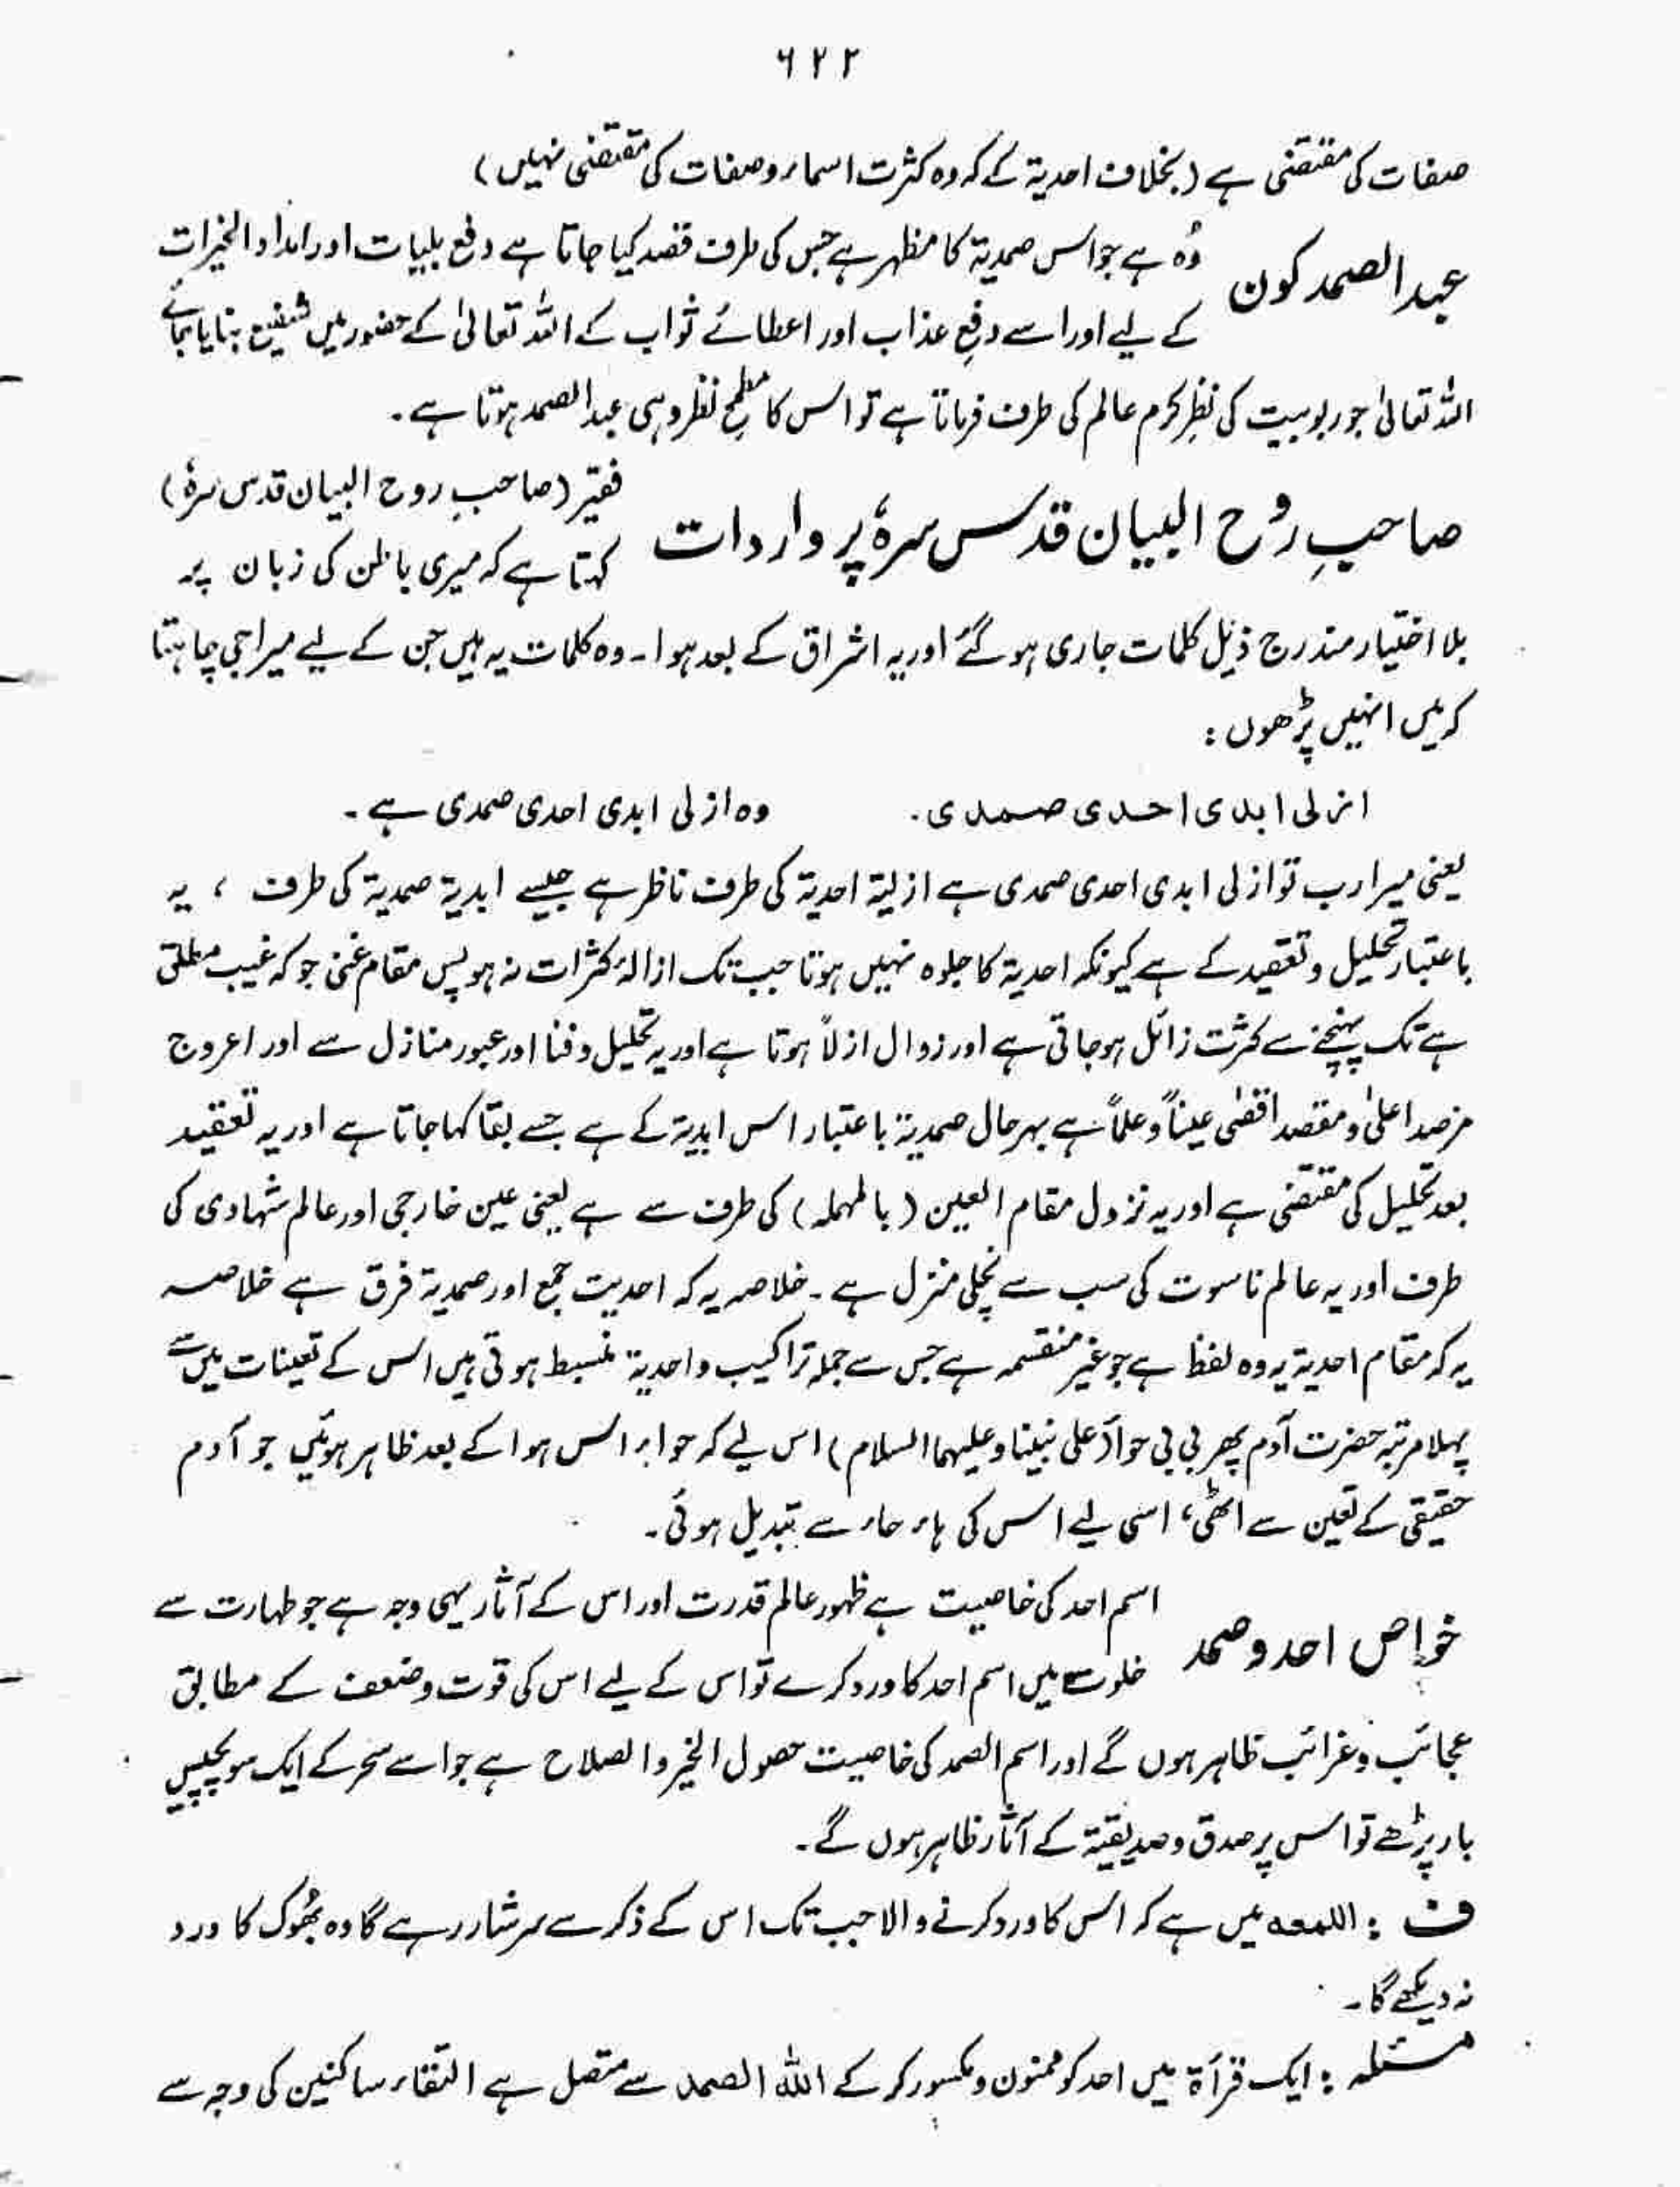 ٦٢٢
صفات کی مقتضی ہے (بخلاف احدیۃ کے کہ وہ کثرت اسماء و صفات کی مقتضی نہیں)
عبدالصمد کون
وُہ ہے جو اس صمدیۃ کا مظہر ہے جس کی طرف قصد کیا جاتا ہے دفع بلیات اور امداد الخیرات
کے لیے اور اسے دفعِ عذاب اور اعطائے ثواب کے اللہ تعالیٰ کے حضور میں شفیع بنایا جائے
اللہ تعالیٰ جو ربوبیت کی نظرِ کرم عالم کی طرف فرماتا ہے تو اس کا مطمحِ نظر وہی عبدالصمد ہوتا ہے۔
صاحبِ رُوح البیان قدس سرہٗ پر واردات
فقیر (صاحبِ روح البیان قدس سرہٗ)
کہتا ہے کہ میری باطن کی زبان پر
بلا اختیار مندرج ذیل کلمات جاری ہو گئے اور یہ اشراق کے بعد ہوا۔ وہ کلمات یہ ہیں جن کے لیے میرا جی چاہتا
کہ میں انہیں پڑھوں :
ازلی ابدی احدی صمدی۔ وہ ازلی ابدی احدی صمدی ہے۔
یعنی میرا رب تو ازلی ابدی احدی صمدی ہے ازلیۃ احدیۃ کی طرف ناظر ہے جیسے ابدیۃ صمدیۃ کی طرف ، یہ
باعتبار تحلیل و تعقید کے ہے کیونکہ احدیۃ کا جلوہ نہیں ہوتا جب تک ازالۂ کثرات نہ ہو پس مقام غنی جو کہ غیب مطلق
ہے تک پہنچنے سے کثرت زائل ہو جاتی ہے اور زوال ازلاً ہوتا ہے اور یہ تحلیل و فنا اور عبور منازل سے اور اعروج
مرصد اعلیٰ و مقصد اقصٰی عیناً و علماً ہے بہرحال صمدیۃ باعتبار اس ابدیۃ کے ہے جسے بقا کہا جاتا ہے اور یہ تعقید
بعد تحلیل کی مقتضی ہے اور یہ نزول مقام العین (بالمہملہ) کی طرف سے ہے یعنی عین خارجی اور عالم شہادی کی
طرف اور یہ عالم ناسوت کی سب سے نچلی منزل ہے۔ خلاصہ یہ کہ احدیت جمع اور صمدیۃ فرق ہے خلاصہ
یہ کہ مقام احدیۃ یہ وہ لفظ ہے جو غیر منقسمہ ہے جس سے جملہ تراکیب واحدیۃ منبسط ہوتی ہیں اس کے تعینات میں سے
پہلا مرتبہ حضرت آدم پھر بی بی حوا (علی نبینا و علیہما السلام) اس لیے کہ حوا براس ہوا کے بعد ظاہر ہوئیں جو آدم
حقیقی کے تعین سے اٹھی، اسی لیے اس کی ہاء حاء سے تبدیل ہوئی۔
خواص احد و صمد
اسم احد کی خاصیت ہے ظہور عالم قدرت اور اس کے آثار یہی وجہ ہے جو طہارت سے
خلوت میں اسم احد کا ورد کرے تو اس کے لیے اس کی قوت و ضعف کے مطابق
عجائب و غرائب ظاہر ہوں گے اور اسم الصمد کی خاصیت حصول الخیر والصلاح ہے جو اسے سحر کے ایک سو پچیس
بار پڑھے تو اس پر صدق و صدیقیۃ کے آثار ظاہر ہوں گے۔
ف : اللمعہ میں ہے کہ اس کا ورد کرنے والا جب تک اس کے ذکر سے سرشار رہے گا وہ بھُوک کا درد
نہ دیکھے گا۔
مسئلہ : ایک قرأۃ میں احد کو ممنون و مکسور کر کے اللہ الصمد سے متصل ہے التقاء ساکنین کی وجہ سے